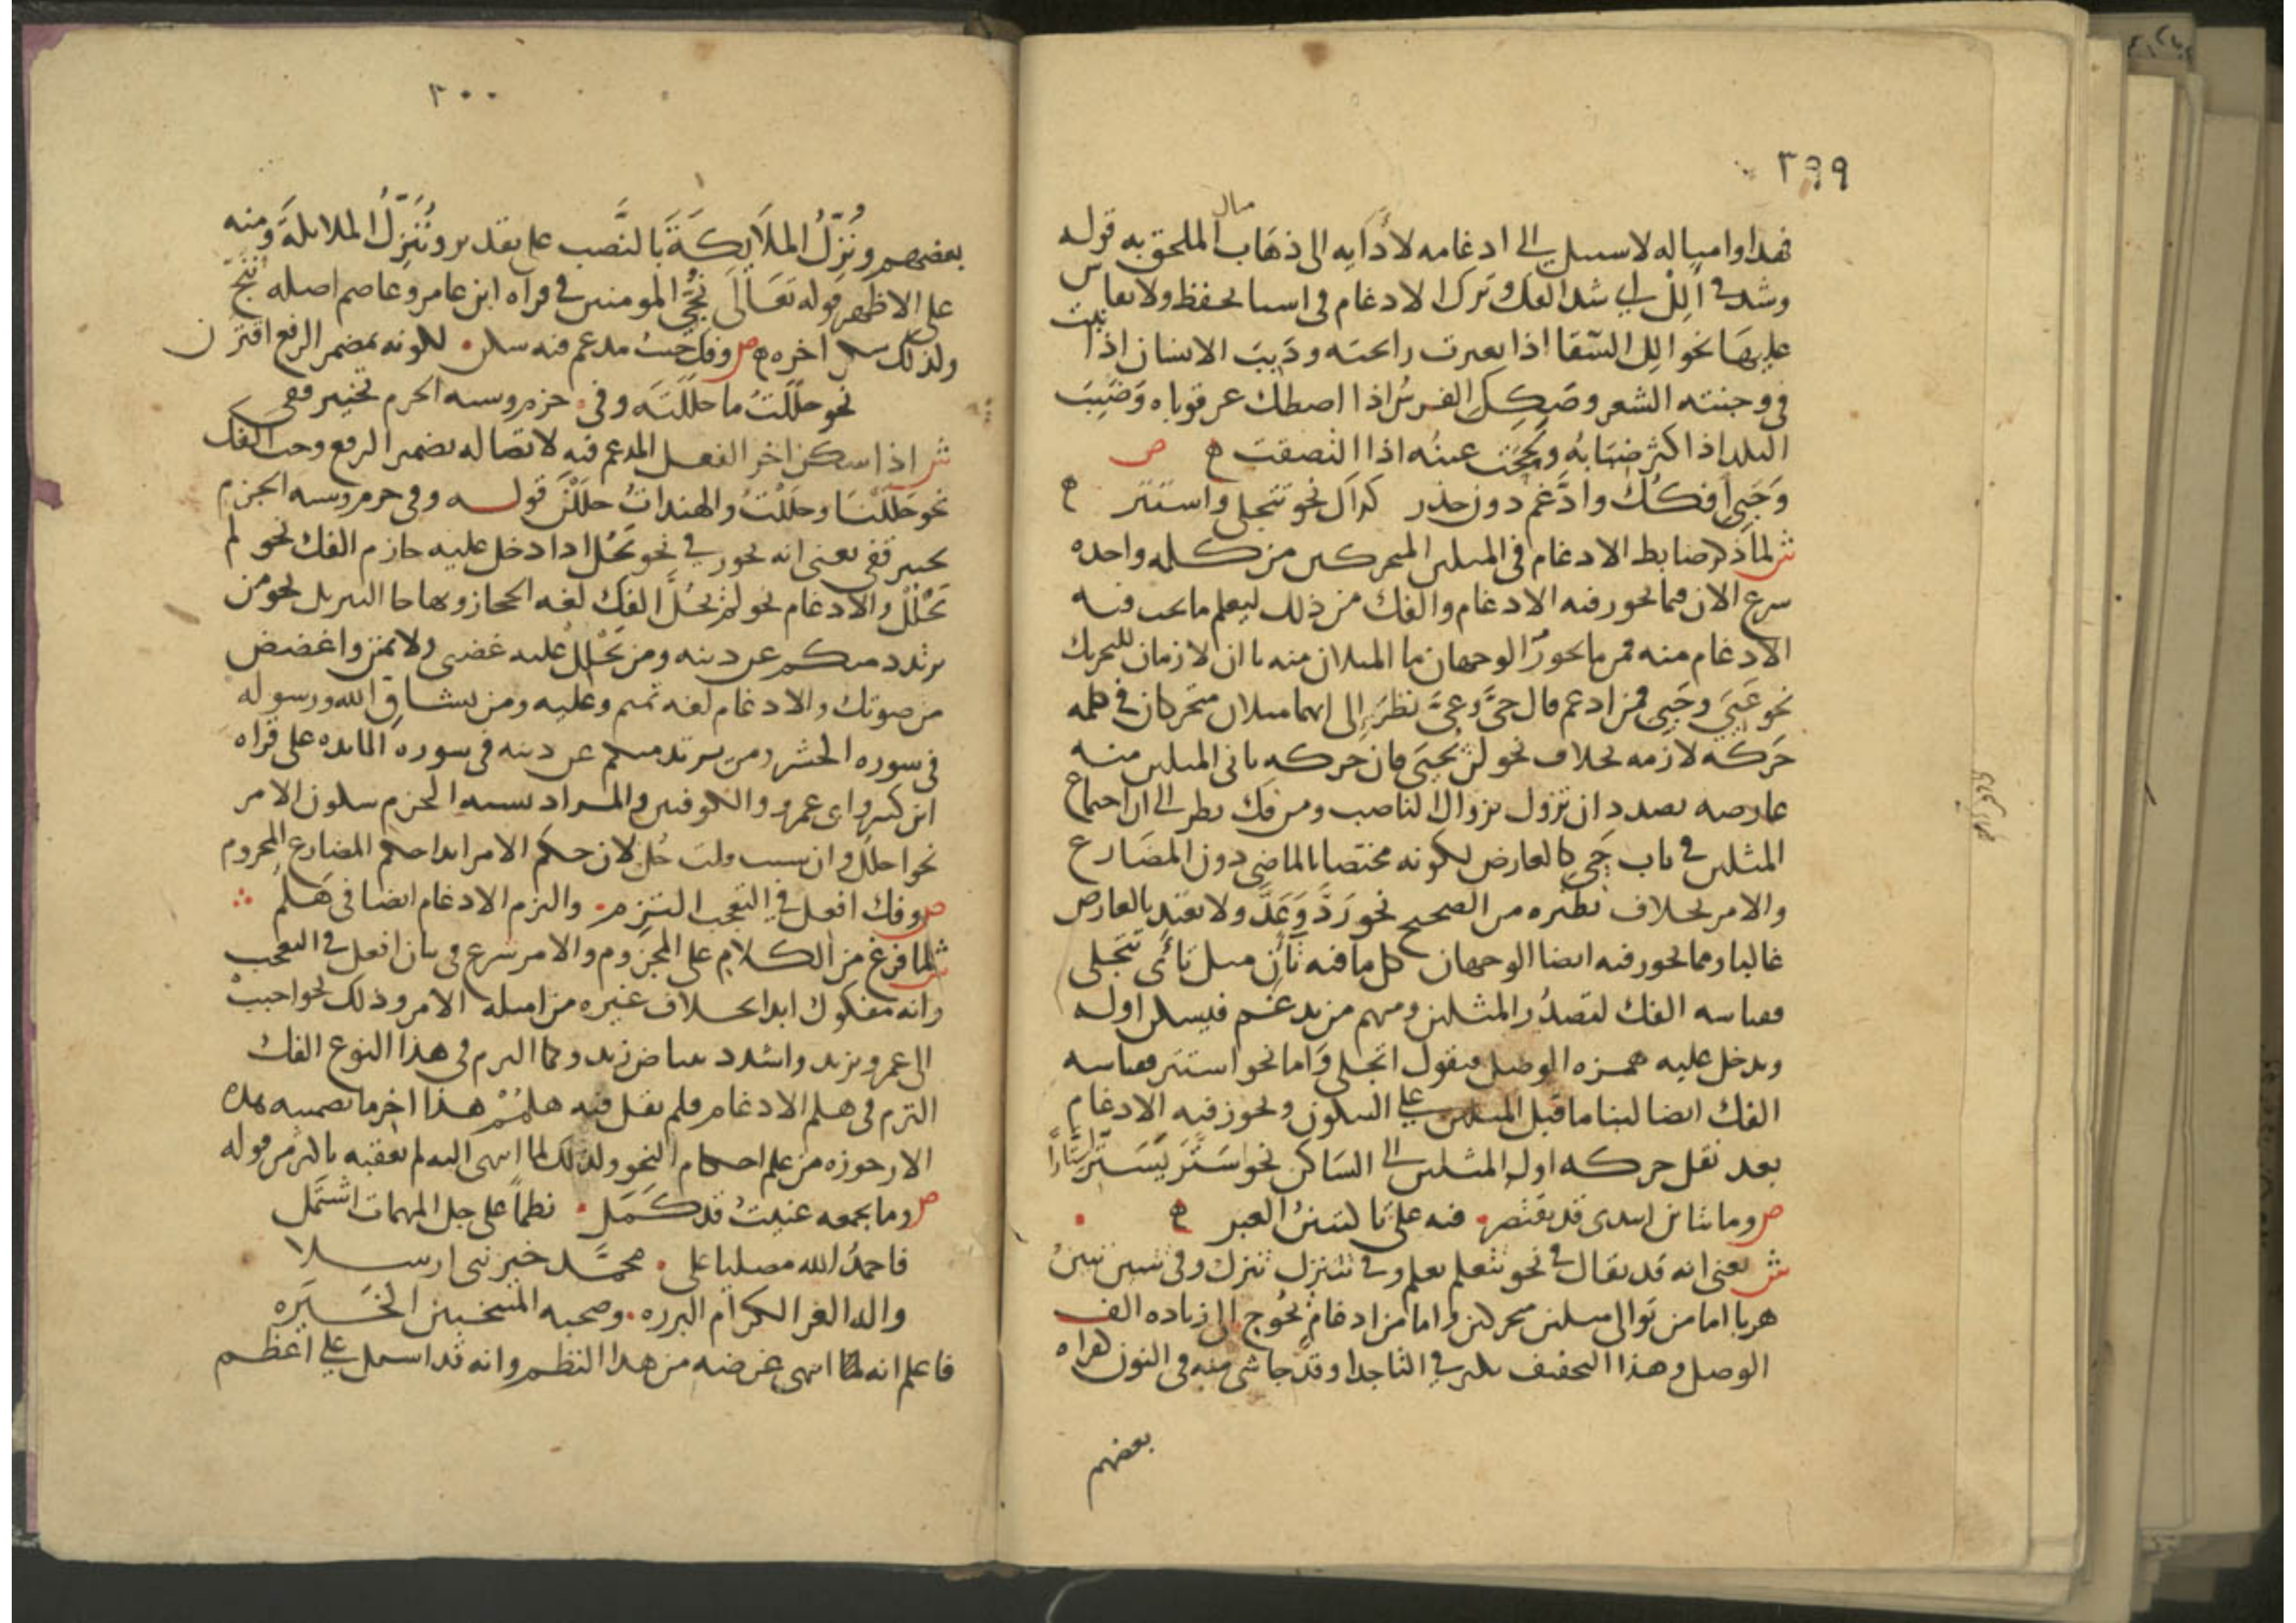 ٣٩٩
مثال
فهذا وامثاله لا سبيل الى ادغامه لأدايه الى ذهاب الملحق به قوله
وشذ في أَلِلْ اي شذ الفك وترك الادغام في اسيا تحفظ ولا يقاس
عليها نحو الِلَ السّقا اذا تغيرت رائحته ودَبِبَ الانسان اذا نبت
في وجنته الشعر وصَكِكَ الفرسُ اذا اصطك عرقوباه وضَبِبَ
البلد اذا كثر ضبابه ولَحِحَت عينُه اذا التصقت ه ص
وَحَيِيَ افكُك وادَّغم دون حذر كذاك نحو تتجلى واستتر ه
ش لما ذكر ضابط الادغام في المثلين المتحركين من كلمه واحده
شرع الان فيما يجوز فيه الادغام والفك من ذلك ليعلم ما يجب فيه
الادغام منه فمن ما يجوز الوجهان ما المثلان منه يا ان لازمان للتحريك
نحو عَيِيَ وحَيِيَ فمن ادغم قال حيَّ وعيَّ نظر إلى انهما مثلان متحركان في كلمه
حَركه لازمه بخلاف نحو لن يحيي فان حركه ثاني المثلين منه
عارضه بصدد ان تزول بزوال الناصب ومن فك نظر الى ان اجتماع
المثلين في باب حَيِيَ كالعارض لكونه مختصا بالماضي دون المضارع
والامر بخلاف نظيره من الصحيح نحو رَدَّ وَعَدَّ ولا يعتد بالعارض
غالبا ومما يجوز فيه ايضا الوجهان كل ما فيه تآن مثل تأى تتجلى
فقياسه الفك لتصدُّر المثلين ومنهم من يدغم فيسكن اوله
ويدخل عليه همزه الوصل فيقول اتجلى وَاما نحو استتر فقياسه
الفك ايضا لبنا ما قبل المثلين على السكون ويجوز فيه الادغام
بعد نقل حركه اول المثلين الى الساكن نحو سَتَّرَ يَسَتِّر سِتّاراً
ص وما بتاين ابتدى قد يقتصر فيه على تا كتبينُ العبر ه
ش يعني انه قد يقال في نحو تتعلم تعلم وفي تتنزل تنزل وفي تتبين تبينُ
هربا اما من توالي مثلين متحركين واما من ادغام يحُوج الى زياده الف
الوصل وهذا التخفيف يكثر في التا جدا وقد جا شي منه في النون كقراه
بعضهم
٣٠٠
بعضهم ونُزِّلُ الملَايكَةَ بالنَّصب على تقدير ونُنَزِّلُ الملايكةَ ومنه
على الاظهر قوله تعَالَى نُجِّي المومنين في قراه ابن عامر وعاصم اصله نُنَجي
ولذلك سكن اخره ه ص وفك حيث مدغم فيه سكن لكونه بمضمر الرفع اقترن
نحو حلَلتُ ما حلَلتَه وفي جزم وشبه الجزم تخيير قفي
ش اذا سكن اخر الفعل المدغم فيه لاتصاله بضمير الرفع وجب الفك
نحو حَلَلْنَا وحلَلْتُ والهنداتُ حلَلْنَ قوله وفي جزم وشبه الجزم
تخيير قفي يعني انه يجوز في نحو يَحُلُّ اذا دخل عليه جازم الفك نحو لم
يَحْلُلْ والادغام نحو لم يَحُلَّ الفك لغه الحجاز وبها جا التنزيل نحو من
يرتدد منكم عن دينه ومن يَحْلِلْ عليه غضبي ولا تمنن واغضض
من صوتك والادغام لغه تميم وعليه ومن يشاق الله ورسوله
في سوره الحشر ومن يرتد منكم عن دينه في سوره المايده على قراه
ابن كثير وابي عمرو والكوفيين والمراد بشبه الجزم سكون الامر
نحو احلُل وان شيت قلت حُلَّ لان حكم الامر ابدا حكم المضارع المجزوم
ص وفك افعل في التعجب التزم والتزم الادغام ايضا في هَلُم
ش لما فرغ من الكلام على المجزوم والامر شرع في بيان افعل في التعجب
وانه مفكوك ابدا بخلاف غيره من امثله الامر وذلك نحو احبِبْ
الى عمرو بزيد واشدد بياض زيد وكما التزم في هذا النوع الفك
التزم في هلم الادغام فلم يقل فيه هلمُمْ هذا اخر ما تضمنته هذه
الارجوزه من علم احكام النحو ولذلك لما انتهى اليه لم يعقبه باكثر من قوله
ص وما بجمعه عنيتُ قد كمَل نظماً على جل المهمات اشتَمَل
فاحمدُ الله مصليا على محمَّد خير نبي ارسلا
واله الغر الكرام البرره وصحبه المنتخبين الخيَره
فاعلم انه لما انتهى غرضه من هذا النظم وانه قد اشتمل على اعظم